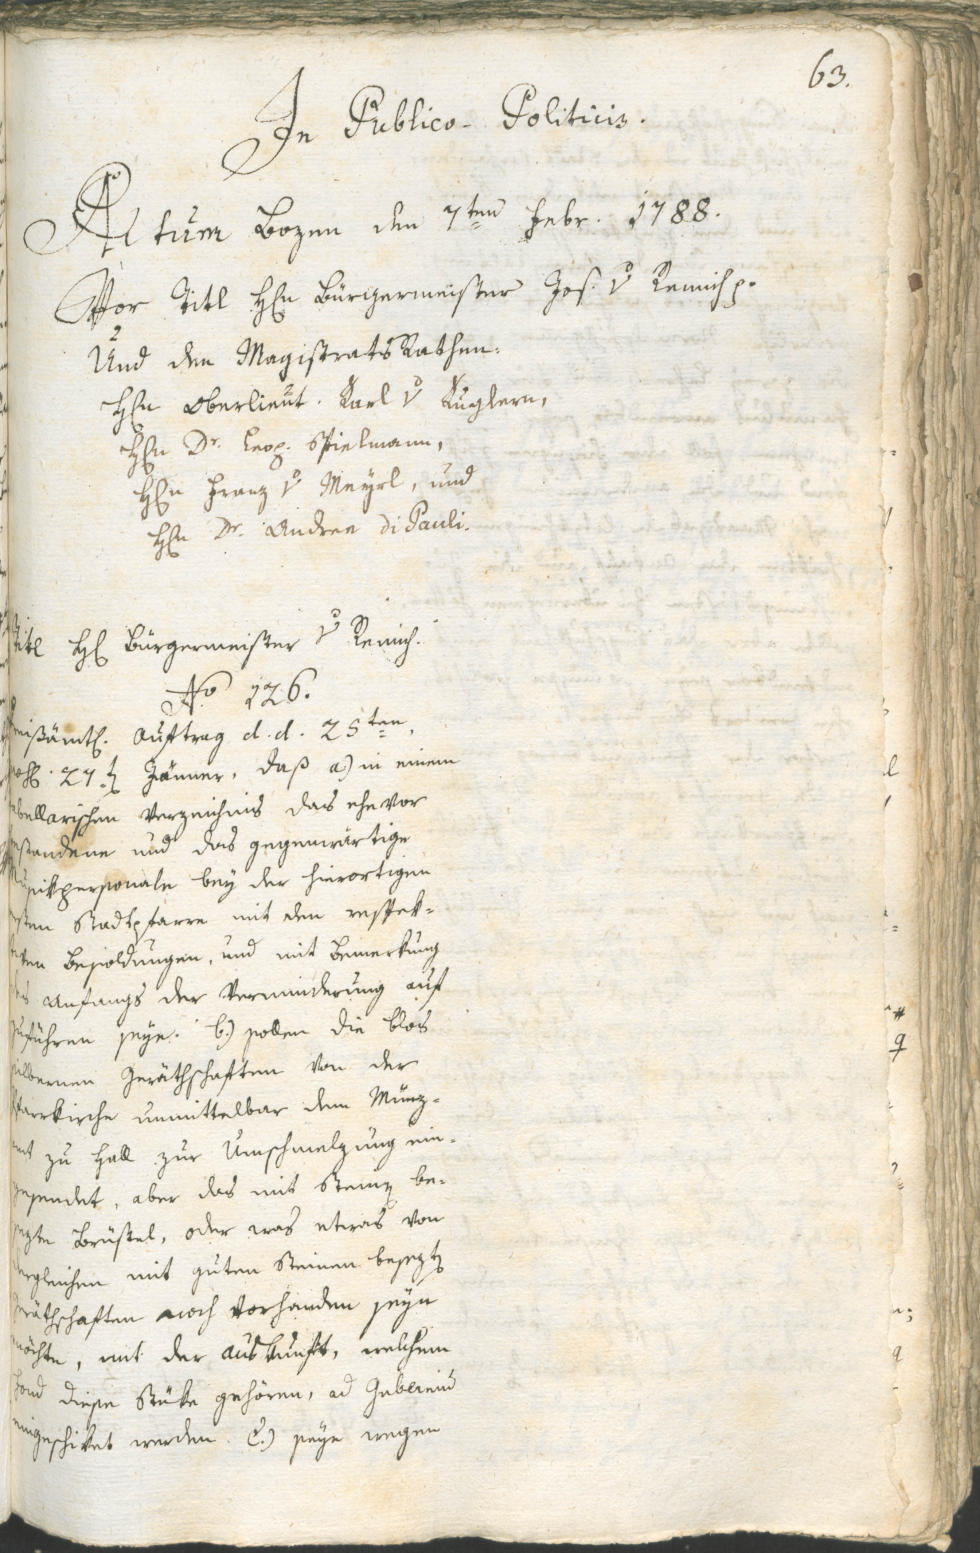 63.
In Publico-Politicis.
Actum Bozen den 7ten Febr. 1788.
Vor Titl Hℓn Bürgermeister Jos. v Remich p.
Und den Magistrats Rathen:
Hℓn Oberlieut. Karl v Kuglern,
Hℓn Dr. Leop. Spielmann,
Hℓn Franz v Meyrl, und
Hℓn Dr. Andree di Pauli.
Titl Hℓ Bürgermeister v Remich.
No 126.
Kreisämtl. Auftrag d. d. 25ten,
27. Jänner, daß a) in einem
tabellarischen Verzeichnis das ehevor
bestandene und das gegenwärtige
Musikpersonale bey der hierortigen
Stadtpfarre mit den respek-
tiven Besoldungen, und mit Bemerkung
des Anfangs der Verminderung auf
zuführen seye. b.) sollen die blos
silbernen Geräthschaften von der
Pfarrkirche unmittelbar dem Münz-
amt zu Hall zur Umschmelzung ein-
gesendet, aber das mit Steinen be-
sezte Brüstel, oder was etwas von
dergleichen mit guten Steinen besezten
Geräthschaften noch vorhanden seyn
möchte, mit der Auskunft, welchem
Fond diese Stüke gehören, ad Gubernium
eingeschiket werden. C.) seye wegen